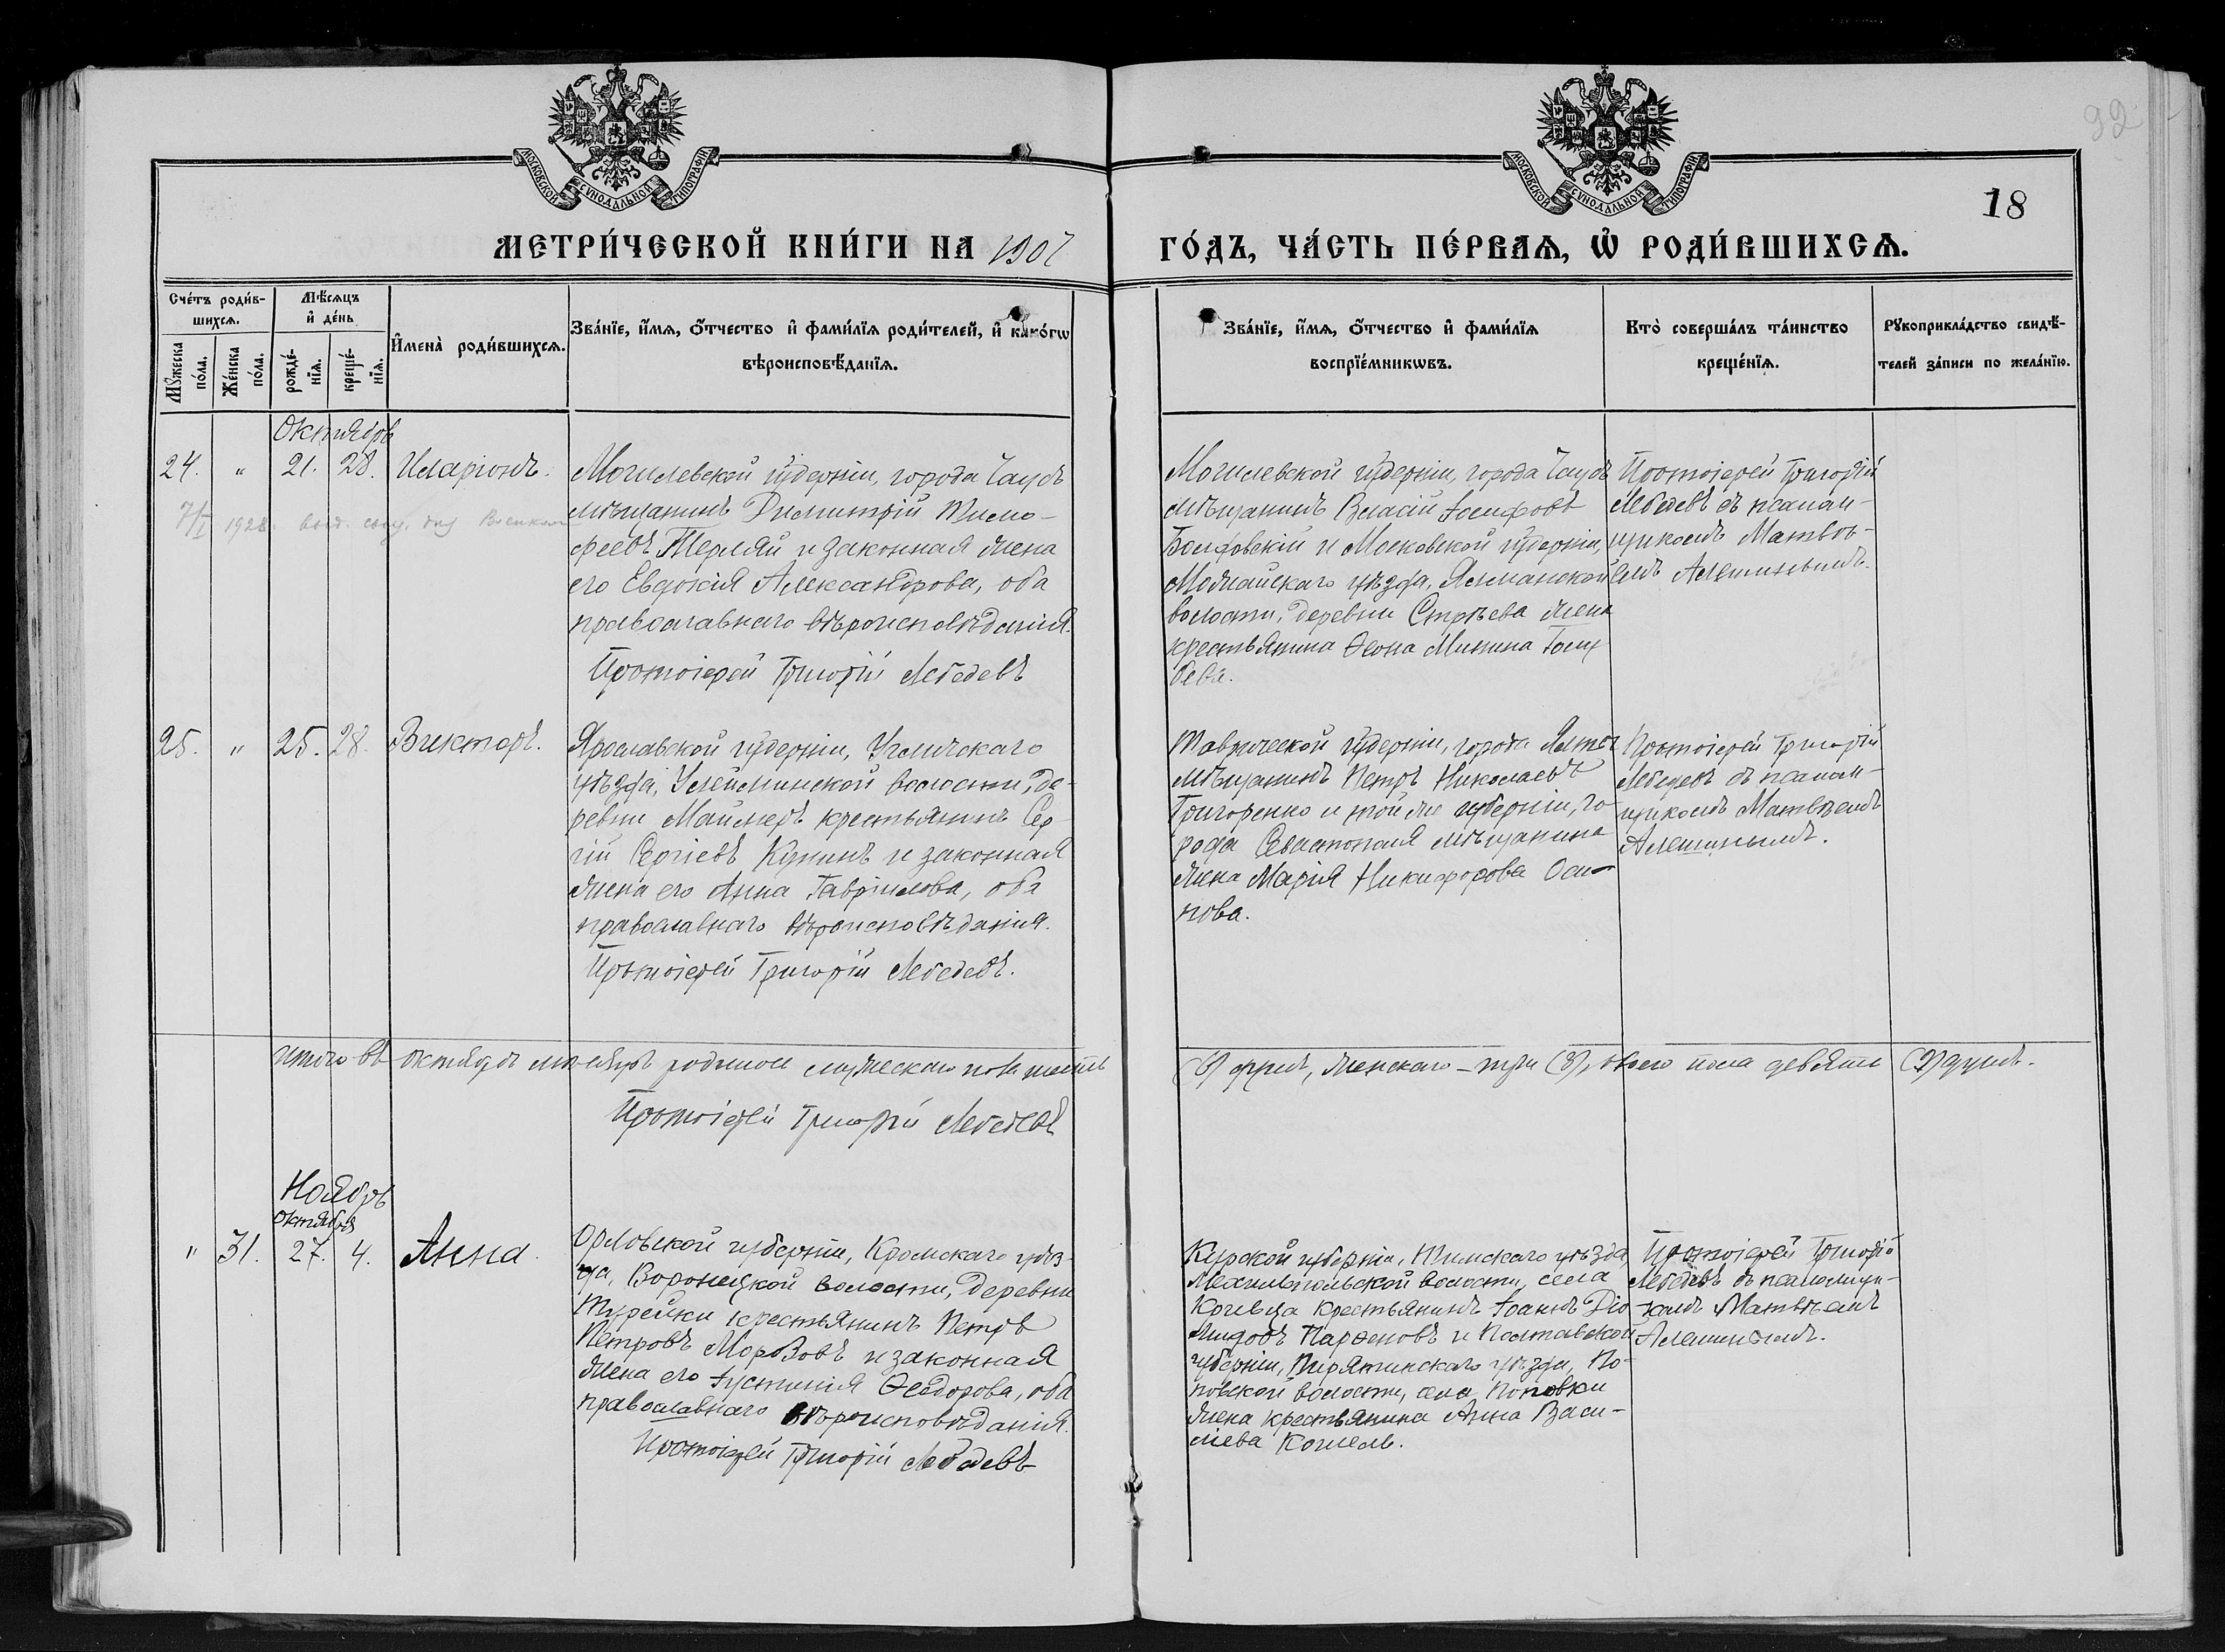 МОСКОВСКОЙ СѴНОДАЛЬНОЙ ТИПОГРАФІИ
МОСКОВСКОЙ СѴНОДАЛЬНОЙ ТИПОГРАФІИ
92
18
МЕТРИ́ЧЕСКОЙ КНИ́ГИ НА 1907
ГО́ДЪ, ЧА́СТЬ ПЕ́РВАѦ, Ѽ РОДИ́ВШИХСѦ.
Сче́тъ роди́в-
шихсѧ.
Мꙋжеска по́ла.
Же́нска по́ла.
Мѣ́сѧцъ
и҆ де́нь
рожде́-
нїѧ.
креще́-
нїѧ.
И҆мена̀ роди́вшихсѧ.
Зва́нїе, и҆́мѧ, ѻ҆́тчество и҆ фами́лїѧ роди́телей, и҆ како́гѡ
вѣроисповѣ́данїѧ.
Зва́нїе, и҆́мѧ, ѻ҆́тчество и҆ фами́лїѧ
воспрїе́мникѡвъ.
Кто̀ соверша́лъ та́инство
креще́нїѧ.
Рꙋкоприкла́дство свидѣ́-
телей за́писи по жела́нїю.
Октябрь
24. " 21. 28. Иларіонъ.
Могилевской губерніи, города Чаусъ
мѣщанинъ Димитрій Тимо-
феевъ Терляй и законная жена
его Евдокія Александрова, оба
православнаго вѣроисповѣданія.
Протоіерей Григорій Лебедевъ
7/I 1928
Могилевской губерніи, города Чаусъ
мѣщанинъ Власій Іосифовъ
и Московской губерніи,
Можайскаго уѣзда,
волости, деревни жена
крестьянина Ѳеона Минина
Протоіерей Григорій
Лебедевъ съ псалом-
щикомъ Матвѣ-
емъ Алешинымъ.
25. " 25. 28. Викторъ.
Ярославской губерніи, Угличскаго
уѣзда, Улейминской волости, де-
ревни крестьянинъ Сер-
гій Сергіевъ и законная
жена его Анна Гавріилова, оба
православнаго вѣроисповѣданія.
Протоіерей Григорій Лебедевъ.
Таврической губерніи, города Ялты
мѣщанинъ Петръ Николаевъ
Григоренко и той же губерніи, го-
рода Севастополя мѣщанина
жена Марія Никифорова Оси-
пова.
Протоіерей Григорій
Лебедевъ съ псалом-
щикомъ Матвѣемъ
Алешинымъ.
Итого въ октябрѣ мѣсяцѣ родилось мужескаго пола шесть
(6) душъ, женскаго – три (3), обоего пола девять (9) душъ.
Протоіерей Григорій Лебедевъ
Ноябрь
Октября
" 31. 27. 4. Анна
Орловской губерніи, Кромскаго уѣз-
да, Воронецкой волости, деревни
Турейки крестьянинъ Петръ
Петровъ Морозовъ и законная
жена его Іустинія Ѳеодорова, оба
православнаго вѣроисповѣданія.
Протоіерей Григорій Лебедевъ
Курской губерніи, Тимскаго уѣзда,
волости, села
крестьянинъ Іоаннъ Діо-
мидовъ Парѳеновъ и Полтавской
губерніи, Пирятинскаго уѣзда, По-
повской волости, села Поповки
жена крестьянина Анна Васи-
ліева
Протоіерей Григорій
Лебедевъ съ псаломщи-
комъ Матвѣемъ
Алешинымъ.